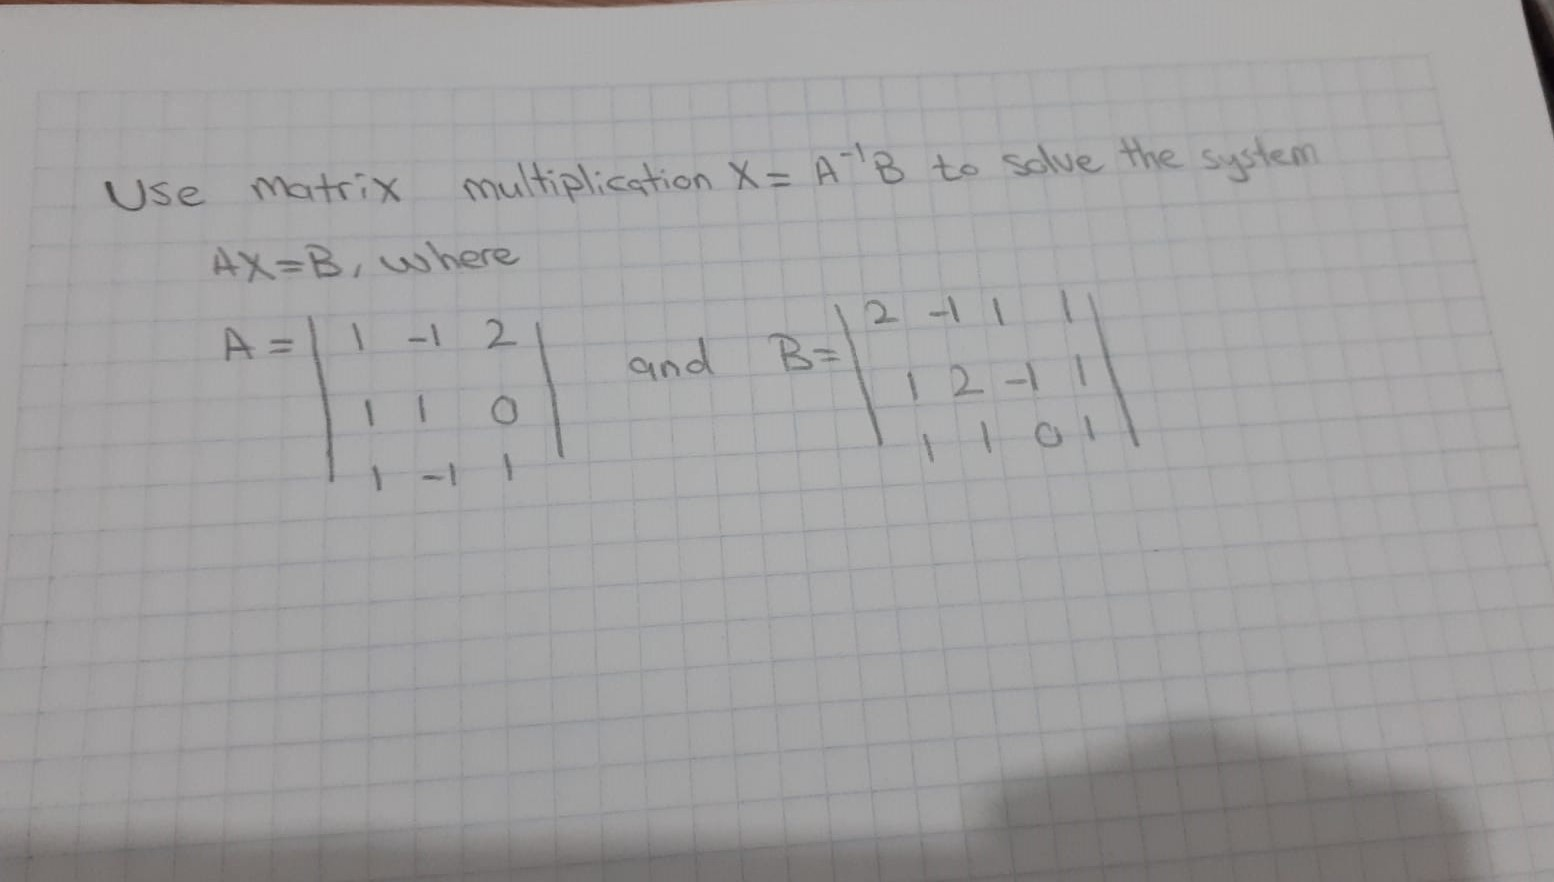 Use matrix multiplication X = A⁻¹B to solve the system
AX=B, where
A = | 1 -1 2 | and B= | 2 -1 1 1 |
| 1 1 0 | | 1 2 -1 1 |
| 1 -1 1 | | 1 1 0 1 |